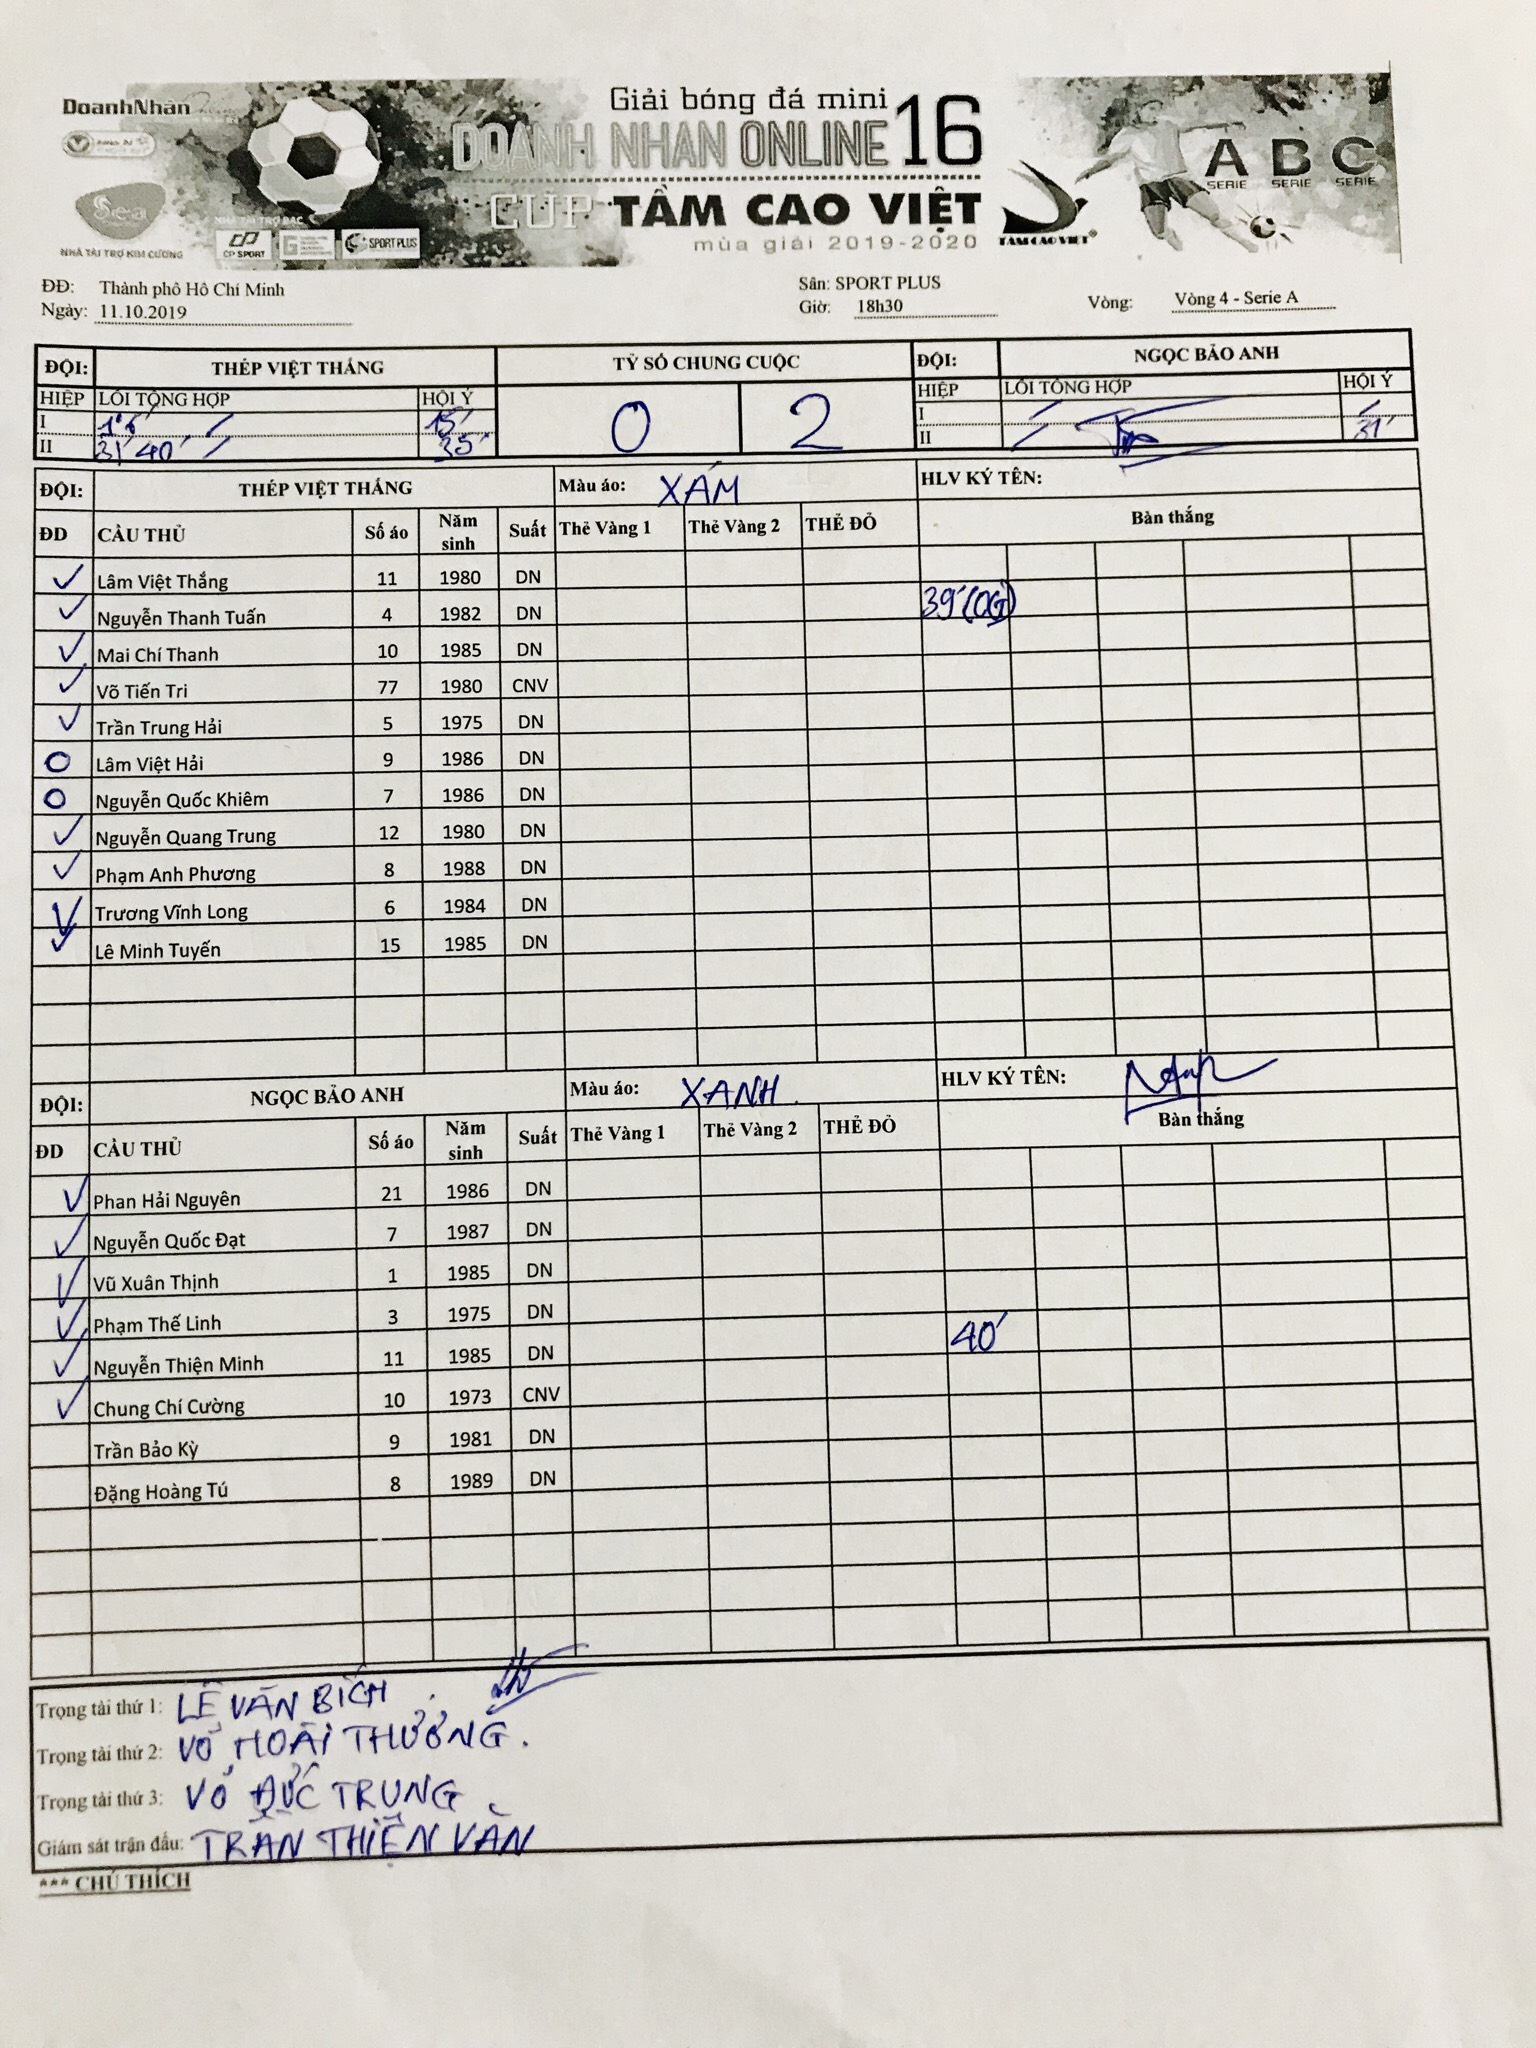 DoanhNhân
Giải bóng đá mini
DOANH NHAN ONLINE 16
CUP TẦM CAO VIỆT
mùa giải 2019-2020
Sea
NHÀ TÀI TRỢ KIM CƯƠNG
NHÀ TÀI TRỢ BẠC
CP SPORT
SPORT PLUS
TẦM CAO VIỆT®
A B C
SERIE SERIE SERIE
ĐĐ: Thành phô Hô Chí Minh Sân: SPORT PLUS
Ngày: 11.10.2019 Giờ: 18h30 Vòng: Vòng 4 - Serie A
ĐỘI: THÉP VIỆT THẮNG TỶ SỐ CHUNG CUỘC ĐỘI: NGỌC BẢO ANH
HIỆP LỖI TỔNG HỢP HỘI Ý 0 2 HIỆP LỖI TỔNG HỢP HỘI Ý
I 15' I
II 31' 40' 35' II 31'
ĐỘI: THÉP VIỆT THẮNG Màu áo: XÁM HLV KÝ TÊN:
ĐD CẦU THỦ Số áo Năm sinh Suất Thẻ Vàng 1 Thẻ Vàng 2 THẺ ĐỎ Bàn thắng
✓ Lâm Việt Thắng 11 1980 DN
✓ Nguyễn Thanh Tuấn 4 1982 DN 39'(OG)
✓ Mai Chí Thanh 10 1985 DN
✓ Võ Tiến Tri 77 1980 CNV
✓ Trần Trung Hải 5 1975 DN
O Lâm Việt Hải 9 1986 DN
O Nguyễn Quốc Khiêm 7 1986 DN
✓ Nguyễn Quang Trung 12 1980 DN
✓ Phạm Anh Phương 8 1988 DN
✓ Trương Vĩnh Long 6 1984 DN
✓ Lê Minh Tuyến 15 1985 DN
ĐỘI: NGỌC BẢO ANH Màu áo: XANH. HLV KÝ TÊN:
ĐD CẦU THỦ Số áo Năm sinh Suất Thẻ Vàng 1 Thẻ Vàng 2 THẺ ĐỎ Bàn thắng
✓ Phan Hải Nguyên 21 1986 DN
✓ Nguyễn Quốc Đạt 7 1987 DN
✓ Vũ Xuân Thịnh 1 1985 DN
✓ Phạm Thế Linh 3 1975 DN
✓ Nguyễn Thiện Minh 11 1985 DN 40'
✓ Chung Chí Cường 10 1973 CNV
Trần Bảo Kỳ 9 1981 DN
Đặng Hoàng Tú 8 1989 DN
Trọng tài thứ 1: LÊ VĂN BÍCH.
Trọng tài thứ 2: VÕ HOÀI THƯƠNG.
Trọng tài thứ 3: VÕ ĐỨC TRUNG
Giám sát trận đấu: TRẦN THIỆN VĂN
*** CHÚ THÍCH